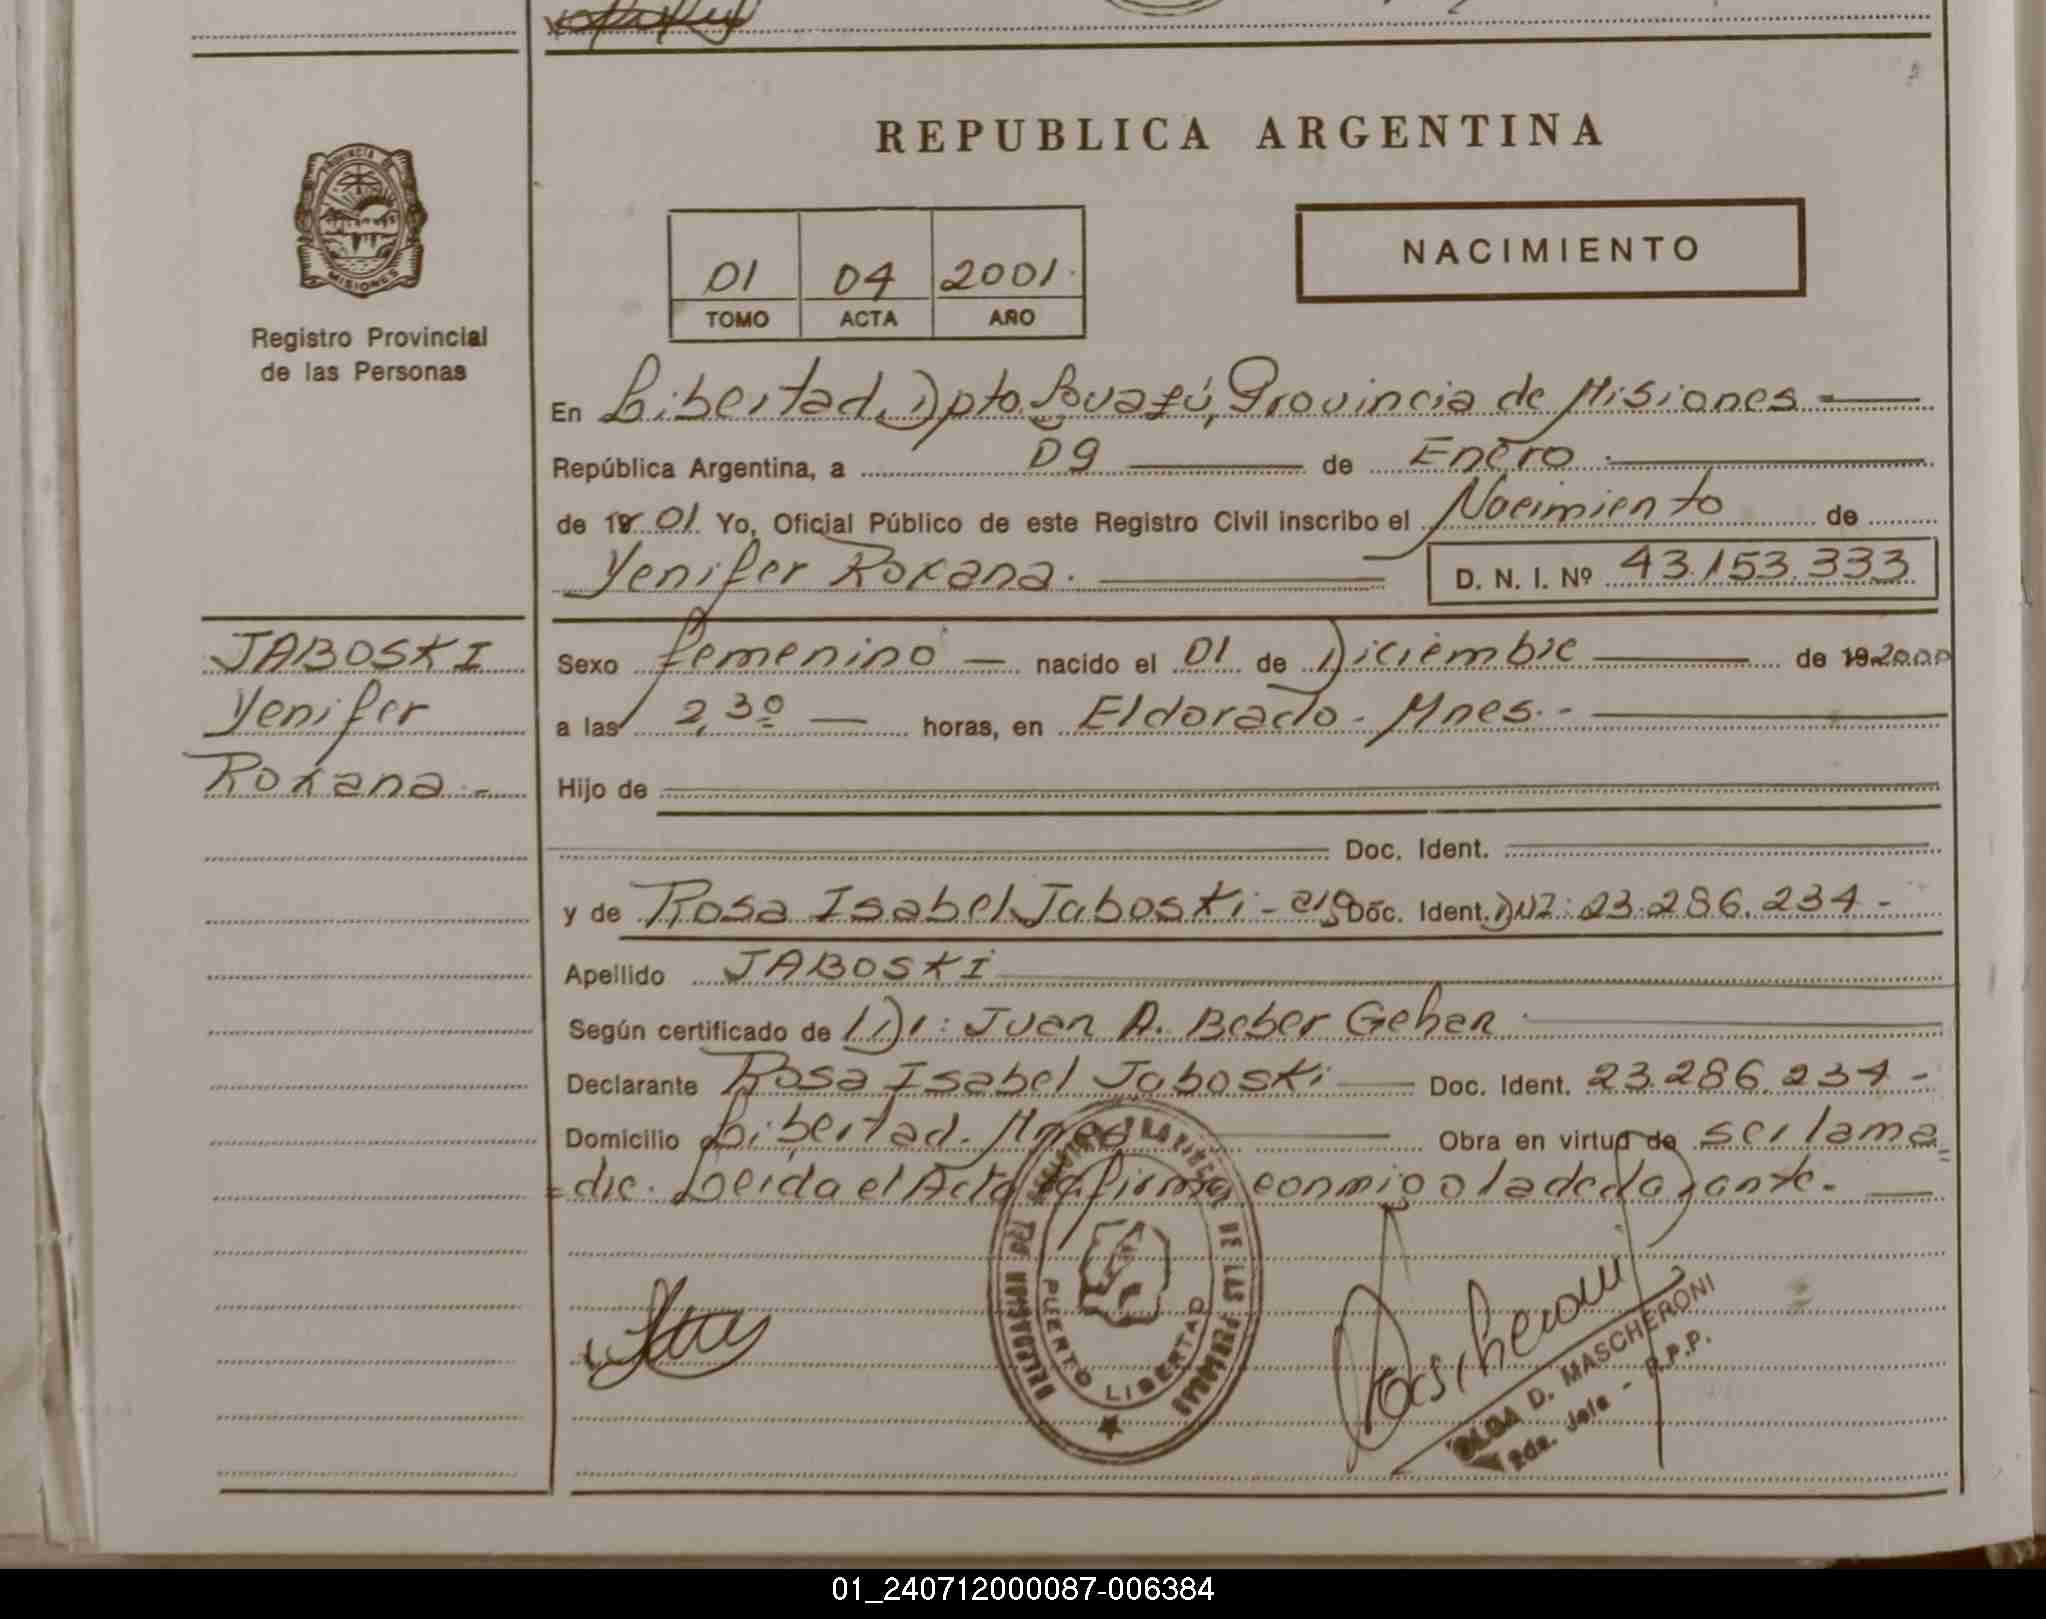 REPUBLICA ARGENTINA
PROVINCIA DE
MISIONES
Registro Provincial
de las Personas
01 04 2001
TOMO ACTA AÑO
NACIMIENTO
En Libertad, Dpto. Iguazú, Provincia de Misiones
República Argentina, a 09 de Enero
de 19 01 Yo, Oficial Público de este Registro Civil inscribo el Nacimiento de
Yenifer Roxana. D. N. I. Nº 43.153.333
JABOSKI
Yenifer
Roxana.-
Sexo femenino nacido el 01 de Diciembre de 19 2000
a las 2,30 horas, en Eldorado - Mnes.-
Hijo de
Doc. Ident.
y de Rosa Isabel Jaboski - arg Doc. Ident. DNI: 23.286.234 -
Apellido JABOSKI
Según certificado de Dr: Juan A. Beber Gehan
Declarante Rosa Isabel Jaboski Doc. Ident. 23.286.234 -
Domicilio Libertad. Mnes Obra en virtud de ser la ma
=dre. Leída el Acta la firma conmigo la declarante.
REGISTRO PROVINCIAL DE LAS PERSONAS
PUERTO LIBERTAD
D. MASCHERONI
Jefe - R.P.P.
01_240712000087-006384